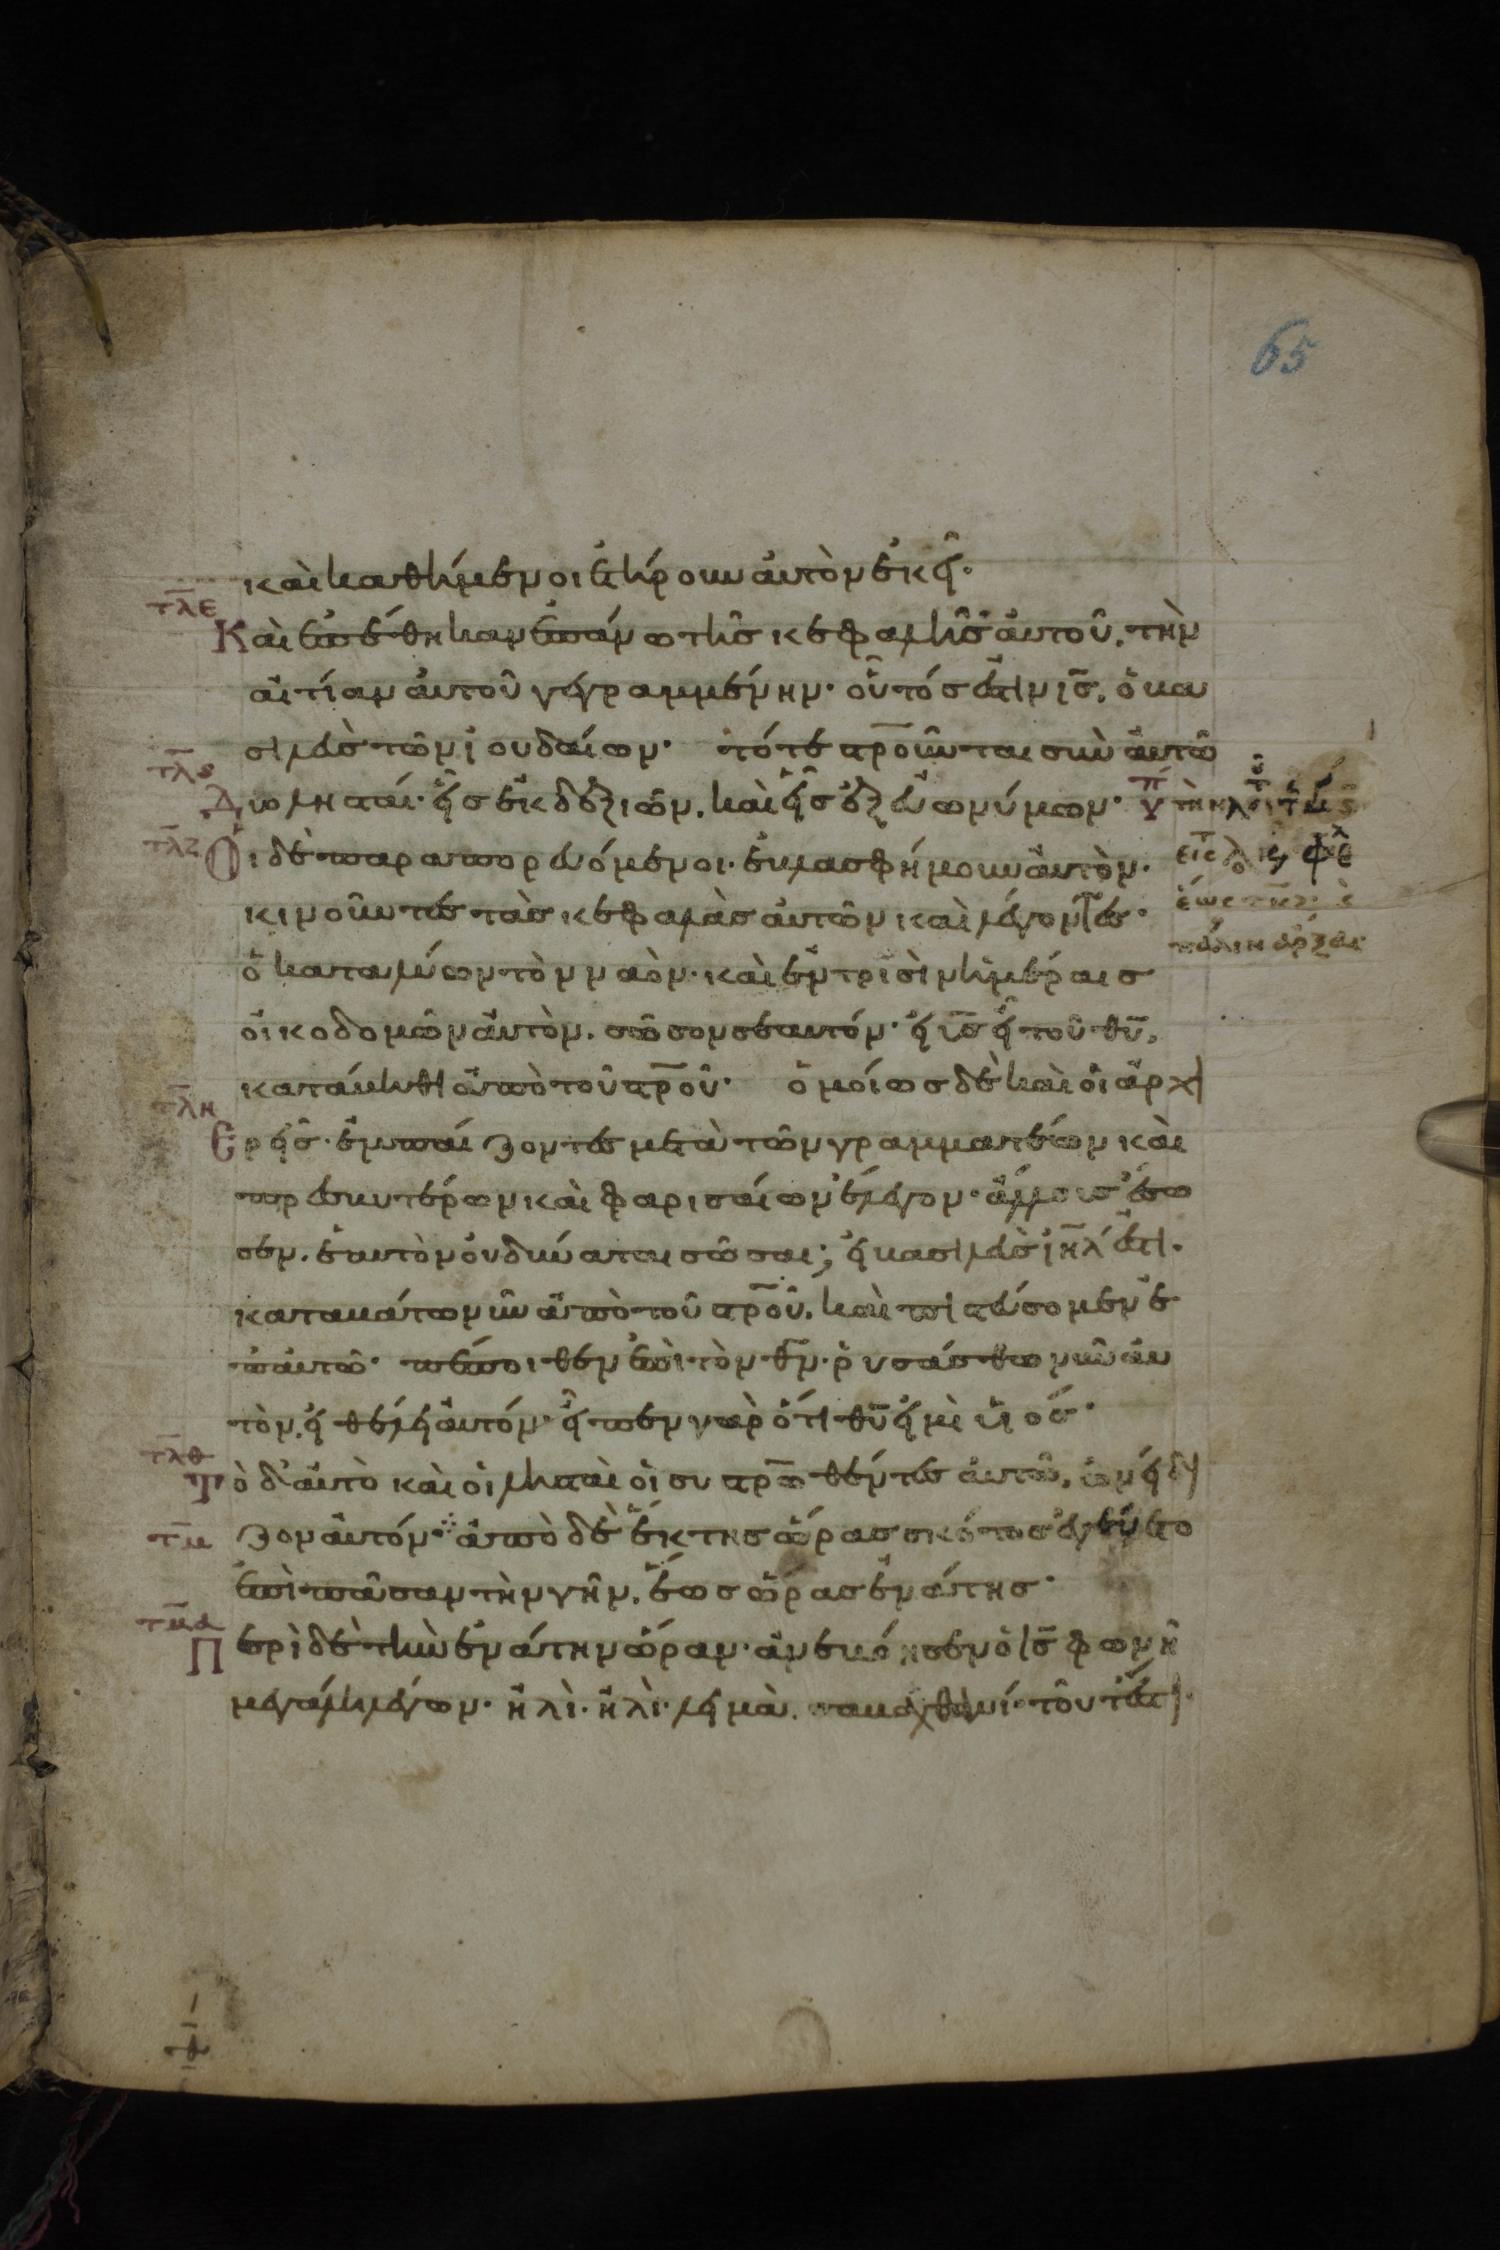 65
καὶ καθήμενοι ἐτήρουν αὐτὸν ἐκεῖ·
τλε
Καὶ ἐπέθηκαν ἐπάνω τῆς κεφαλῆς αὐτοῦ, τὴν
αἰτίαν αὐτοῦ γεγραμμένην· οὗτός ἐστιν ις̅, ὁ βα
σιλεὺς τῶν ἰουδαίων· τότε στ̅ροῦνται σὺν αὐτῶ
τλς
Δύο λησταί· εἷς ἐκ δεξιῶν, καὶ εἷς ἐξ εὐωνύμων·
τλζ
Οἱ δὲ παραπορευόμενοι· ἐβλασφήμουν αὐτὸν·
κινοῦντες τὰς κεφαλὰς αὐτῶν καὶ λέγοντες·
ἕως
πάλιν ἄρξαι
ὁ καταλύων τὸν ναὸν· καὶ ἐν τρισὶν ἡμέραις
οἰκοδομῶν αὐτὸν. σῶσον σεαυτόν· εἰ υς̅ εἶ τοῦ θυ̅,
κατάβηθι ἀπὸ τοῦ στ̅ροῦ· ὁμοίως δὲ καὶ οἱ ἀρχι
τλη
Ερεῖς· ἐμπαίζοντες μετὰ τῶν γραμματέων καὶ
πρεσβυτέρων καὶ φαρισαίων ἔλεγον· ἄλλους ἔσω
σεν. ἑαυτὸν οὐ δύναται σῶσαι; εἰ βασιλεὺς ιη̅λ ἐστι.
καταβάτω νῦν ἀπὸ τοῦ στ̅ροῦ, καὶ πιστεύσομεν ἐ
π αὐτῶ· πέποιθεν ἐπὶ τὸν θν̅· ῥυσάσθω νῦν αὐ
τὸν, εἰ θέλει αὐτόν· εἶπεν γὰρ ὅτι θυ̅ εἰμὶ υἱός·
τλθ
Τὸ δ' αὐτὸ καὶ οἱ λησταὶ οἱ συστ̅ρωθέντες αὐτῶ, ὠνείδι
τμ
ζον αὐτόν· ἀπὸ δὲ ἕκτης ὥρας σκότος ἐγένετο
ἐπὶ πᾶσαν τὴν γῆν, ἕως ὥρας ἐνάτης·
τμα
Περὶ δὲ τὴν ἐνάτην ὥραν· ἀνεβόησεν ὁ ις̅ φωνῆ
μεγάλη λέγων· ἠλὶ· ἠλὶ· λειμὰ. σαβαχθανί· τοῦτ' ἔστι·